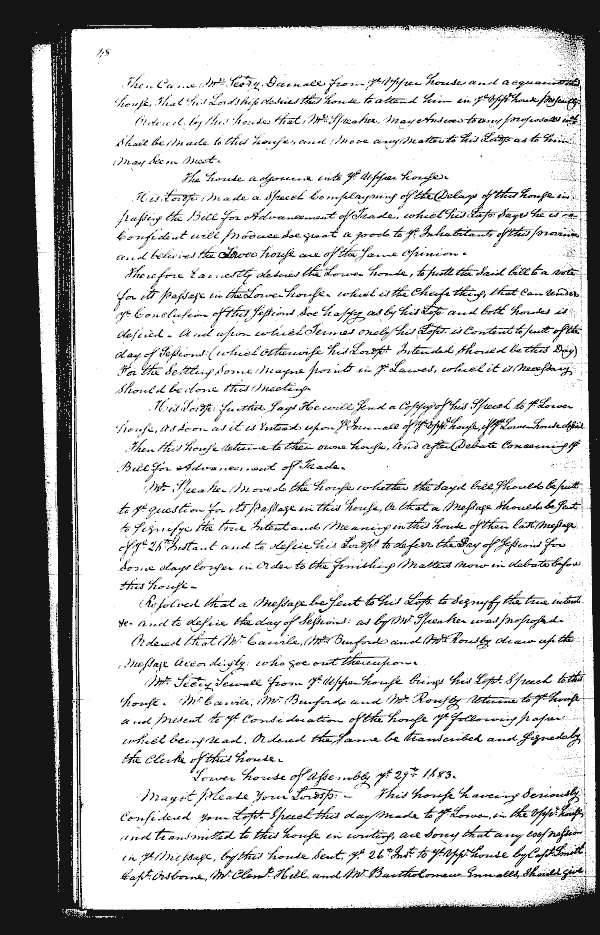 48
Then Came Mr. Secry. Darnall from ye Upper house and acquainted
house, that his Lordship desires this house to attend him in ye Uppr. house presently
Ordered by this house that Mr. Speaker, may Answer to any proposals
Shall be made to this house, and move any Matter to his Lordsp. as to him
may Seem meet.
The house adjourne into ye Upper house.
His Lordsp. made a Speech Complayning of the Delays of this house in
passing the Bill for Advancement of Trade, which his Lops. Says he is
Confident will produce soe great a good to ye Inhabitants of this province
and believes the Lower house are of the Same Opinion.
Therefore Earnestly desires the Lower house, to putt the Said bill to a vote
for its passage in the Lower house. which is the Cheife thing, that can render
ye Conclusion of this Sessions Soe happy, as by his Lop. and both houses is
desired. And upon which Termes onely his Lopt. is Content to putt of the
day of Sessions (which otherwise his Lordsp. Intended Should be this Day)
For the Settling Some Mayne points in ye Lawes, which it is necessary
Should be done this Meeting.
His Lordsp. further Says He will Send a Coppy of his Speech to ye Lower
house, as soon as it is Entred upon ye Journall of ye Uppr. house, if ye Lower house
Then this house returne to their owne house, And after Debate Concerning ye
Bill for Advancement of Trade.
Mr. Speaker Moved the house whether the Sayd bill, Should be putt
to ye question for its passage in this house, Or that a Message Should be Sent
to Signifye the true Intent and Meaning in this house of their last Message
of ye 26th Instant and to desire his Lordsp. to deferr the Day of Sessions for
Some days longer in Order to the finishing Matters now in debate before
this house.
Resolved that a Message be Sent to his Lop. to Signify the true intent
&c. and to desire the day of Sessions as by Mr. Speaker was proposed.
Ordered that Mr. Carvile, Mr. Burford and Mr. Rousby draw up the
Message Accordingly. who goe out thereupon.
Mr. Secry Sewall from ye Upper house brings his Lopt. Speech to this
house. Mr. Carvile, Mr. Burford and Mr. Rousby Returne to ye house
and present to ye Consideration of the house ye following paper
which being read. Ordered the Same be transcribed and Signed by
the Clerke of this house.
Lower house of Assembly ye 29th. 1683.
May it please Your Lordsp. This house haveing Seriously
Considered your Lopt. Speech this day made to ye Lower, in the Uppr. house
and transmitted to this house in writing, are Sorry that any expression
in ye Message, by this house Sent, ye 26th Inst. to ye Uppr house by Capt. Smith
Capt. Osborne, Mr. Clemt. Hill and Mr. Bartholomew Ennalls, Should give